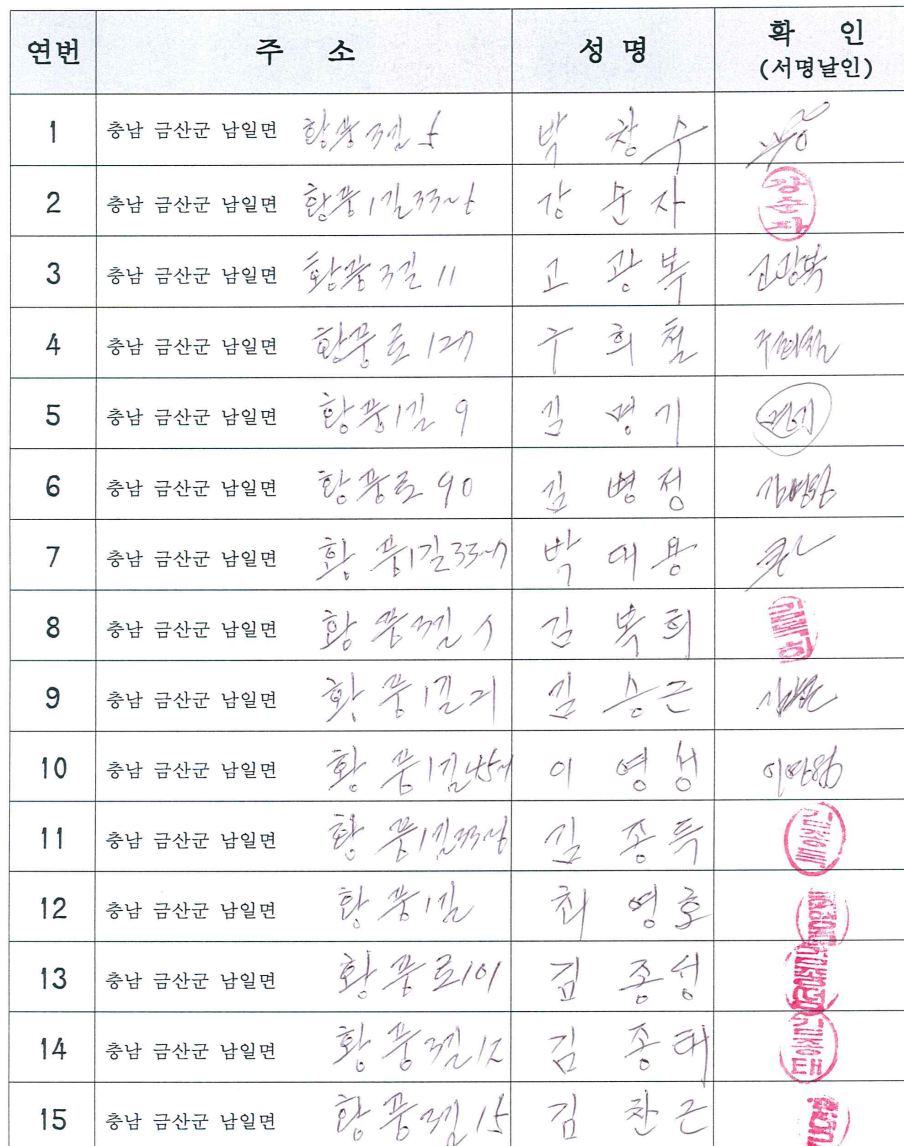 연번 주 소 성 명 확 인
(서명날인)
1 충남 금산군 남일면 황풍3길 5 박 창 수
2 충남 금산군 남일면 황풍1길 33-6 강 순 자
3 충남 금산군 남일면 황풍3길 11 고 광 복 고광복
4 충남 금산군 남일면 황풍로 127 구 희 철 구희철
5 충남 금산군 남일면 황풍1길 9 김 명 기 명기
6 충남 금산군 남일면 황풍로 90 김 병 정
7 충남 금산군 남일면 황풍1길 33-7 박 대 용
8 충남 금산군 남일면 황풍3길 김 복 희
9 충남 금산군 남일면 황풍1길 21 김 승 근
10 충남 금산군 남일면 황풍1길 이 영
11 충남 금산군 남일면 황풍1길 33-6 김 종 득
12 충남 금산군 남일면 황풍1길 최 영 호
13 충남 금산군 남일면 황풍로 101 김 종 성
14 충남 금산군 남일면 황풍3길 12 김 종 태
15 충남 금산군 남일면 황풍3길 15 김 찬 근